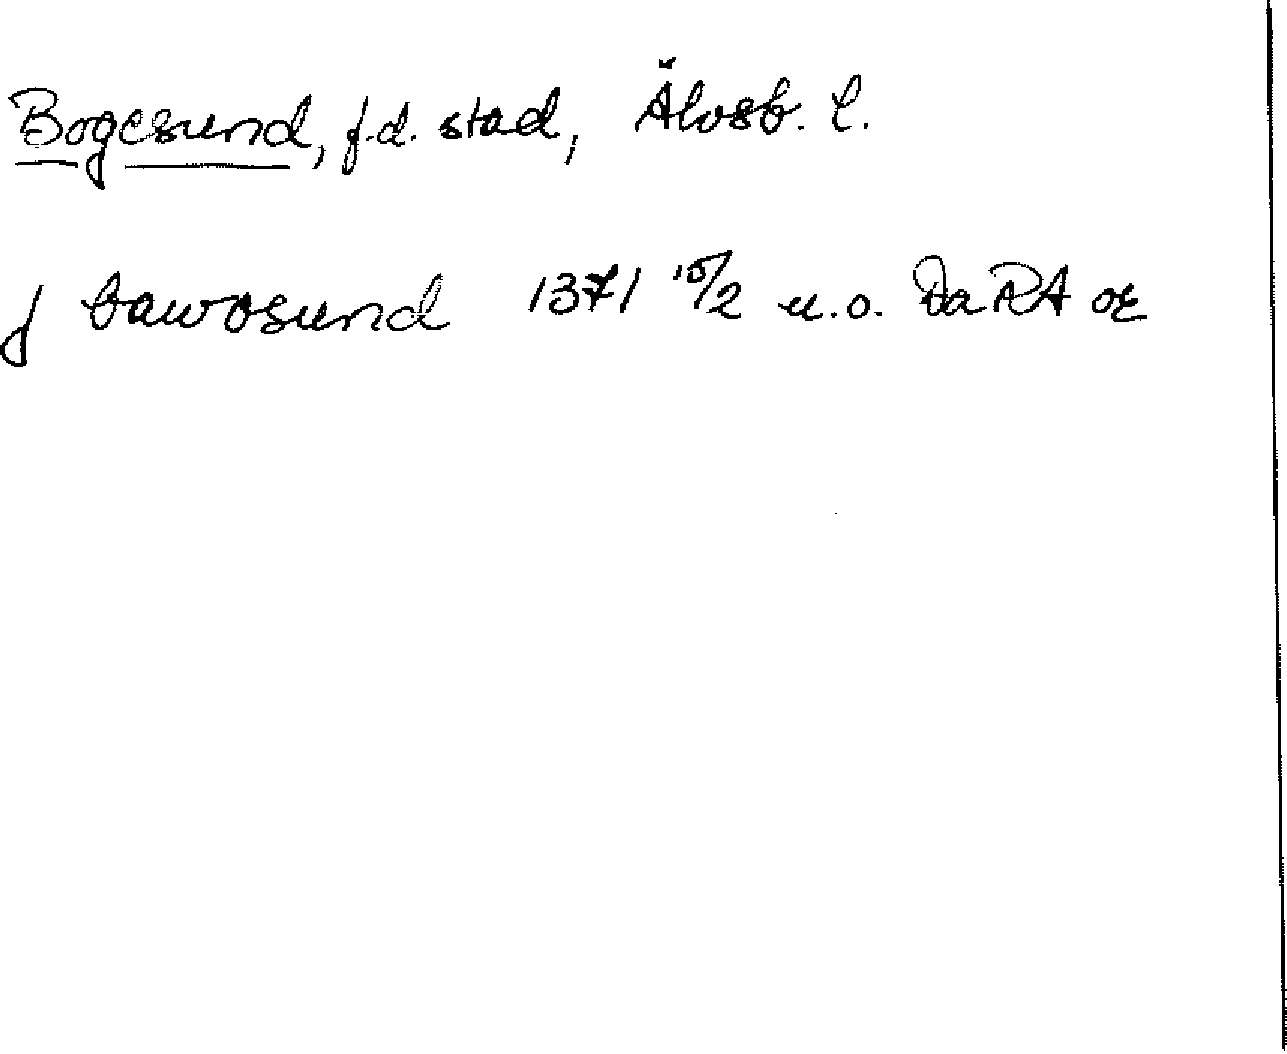 Bogesund, f.d. stad, Älvsb. l.
j bawosund 1371 15/2 u.o. DaRA or